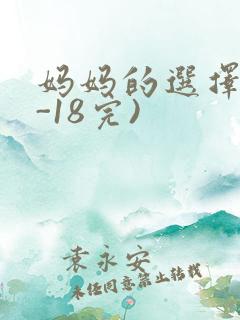 妈妈的選择
-18完)
袁永安
未经同意禁止转载